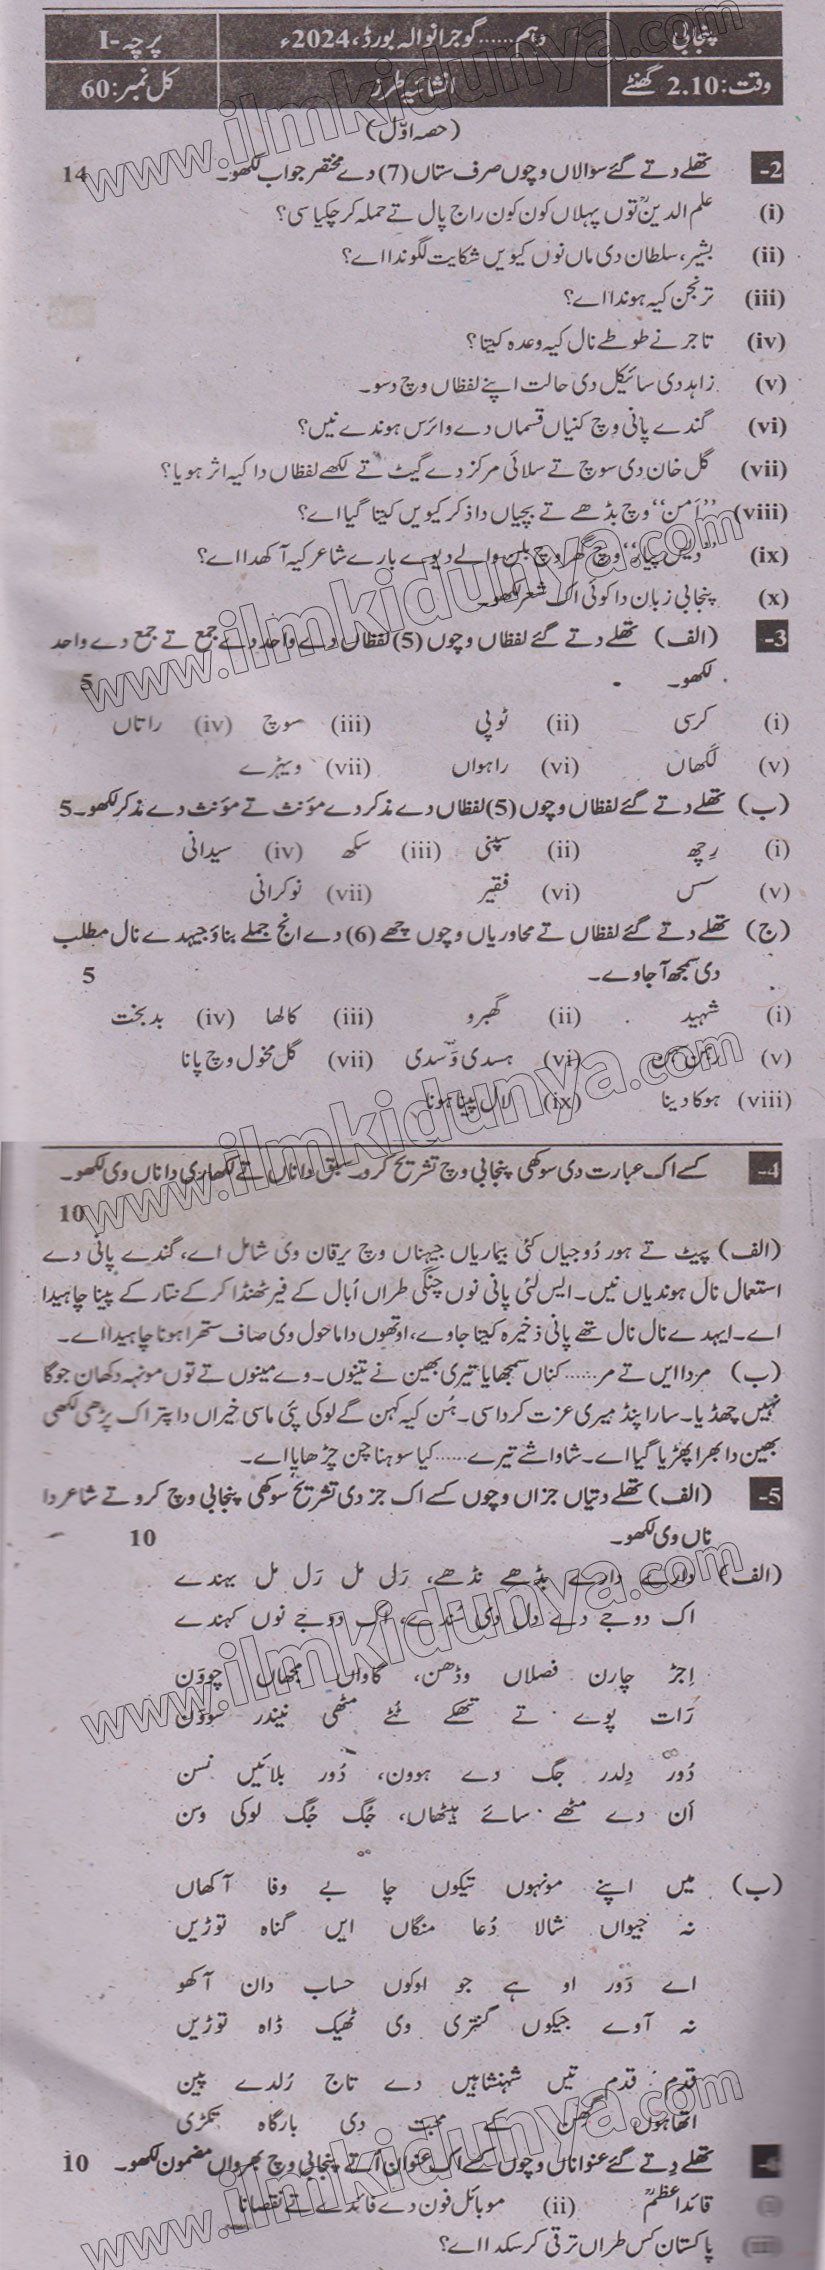 پنجابی دہم......گوجرانوالہ بورڈ، 2024ء پرچہ-I
وقت: 2.10 گھنٹے انشائیہ طرز کل نمبر: 60
(حصہ اوّل)
2- تھلے دتے گئے سوالاں وچوں صرف ستاں (7) دے مختصر جواب لکھو۔ 14
(i) علم الدینؒ توں پہلاں کون کون راج پال تے حملہ کر چکیا سی؟
(ii) بشیر، سلطان دی ماں نوں کیویں شکایت لگوندا اے؟
(iii) ترنجن کیہ ہوندا اے؟
(iv) تاجر نے طوطے نال کیہ وعدہ کیتا؟
(v) زاہد دی سائیکل دی حالت اپنے لفظاں وچ دسو۔
(vi) گندے پانی وچ کنیاں قسماں دے وائرس ہوندے نیں؟
(vii) گل خان دی سوچ تے سلائی مرکز دے گیٹ تے لکھے لفظاں دا کیہ اثر ہویا؟
(viii) ”اَمن“ وچ بڈھے تے بچیاں دا ذکر کیویں کیتا گیا اے؟
(ix) ”دیس پیار“ وچ گھر وچ بلن والے دیوے بارے شاعر کیہ آکھدا اے؟
(x) پنجابی زبان دا کوئی اک شعر لکھو۔
3- (الف) تھلے دتے گئے لفظاں وچوں (5) لفظاں دے واحد دے جمع تے جمع دے واحد
لکھو۔ 5
(i) کرسی (ii) ٹوپی (iii) سوچ (iv) راتاں
(v) لکھاں (vi) راہواں (vii) ویہڑے
(ب) تھلے دتے گئے لفظاں وچوں (5) لفظاں دے مذکر دے مؤنث تے مؤنث دے مذکر لکھو۔ 5
(i) رِچھ (ii) سپنی (iii) سکھ (iv) سیدانی
(v) سس (vi) فقیر (vii) نوکرانی
(ج) تھلے دتے گئے لفظاں تے محاوریاں وچوں چھے (6) دے انج جملے بناؤ جیہدے نال مطلب
دی سمجھ آ جاوے۔ 5
(i) شہید (ii) گھبرو (iii) کالھا (iv) بدبخت
(v) رہن سہن (vi) ہسدی وَسدی (vii) گل مخول وچ پانا
(viii) ہوکا دینا (ix) لال پیلا ہونا
4- کسے اک عبارت دی سوکھی پنجابی وچ تشریح کرو۔ سبق دا ناں تے لکھاری دا ناں وی لکھو۔
10
(الف) پیٹ تے ہور دُوجیاں کئی بیماریاں جیہناں وچ یرقان وی شامل اے، گندے پانی دے
استعمال نال ہوندیاں نیں۔ ایس لئی پانی نوں چنگی طراں اُبال کے فیر ٹھنڈا کر کے نتار کے پینا چاہیدا
اے۔ ایہدے نال نال تھے پانی ذخیرہ کیتا جاوے، اوتھوں دا ماحول وی صاف ستھرا ہونا چاہیدا اے۔
(ب) مردا ایں تے مر...... کناں سمجھایا تیری بھین نے تینوں۔ وے مینوں تے توں مونہہ دکھان جوگا
نہیں چھڈیا۔ سارا پنڈ میری عزت کردا سی۔ ہُن کیہ کہن گے لوکی پئی ماسی خیراں دا پتر اک پڑھی لکھی
بھین دا بھرا پھڑیا گیا اے۔ شاواشے تیرے...... کیا سوہنا چن چڑھایا اے۔
5- (الف) تھلے دتیاں جزاں وچوں کسے اک جز دی تشریح سوکھی پنجابی وچ کرو تے شاعر دا
ناں وی لکھو۔ 10
(الف) دارے دارے بڈھے نڈھے، رَلی مل رَل مل بہندے
اک دوجے دے دل دی سُندے، اک دوجے نوں کہندے
اِجڑ چارن فصلاں وڈھن، گاواں مجھاں چووَن
رَات پوے تے تھکے ٹُٹے مٹھی نیندر سووَن
دُور دِلدر جگ دے ہوون، دُور بلائیں نسن
اَن دے مٹھے سائے ہیٹھاں، جُگ جُگ لوکی وسن
(ب) میں اپنے مونہوں تیکوں چا بے وفا آکھاں
نہ جیواں شالا دُعا منگاں ایں گناہ توڑیں
اے دَور او ہے جو اوکوں حساب دان آکھو
نہ آوے جیکوں گنتری وی ٹھیک ڈاہ توڑیں
قدم قدم تیں شہنشاہیں دے تاج رُلدے پین
اتھاہوں گھن کے محبت دی بارگاہ تکڑی
تھلے دِتے گئے عنواناں وچوں کسے اک عنوان اُتے پنجابی وچ بھرواں مضمون لکھو۔ 10
قائداعظمؒ (ii) موبائل فون دے فائدے تے نقصانا
پاکستان کس طراں ترقی کر سکدا اے؟
www.ilmkidunya.com
www.ilmkidunya.com
www.ilmkidunya.com
www.ilmkidunya.com
www.ilmkidunya.com